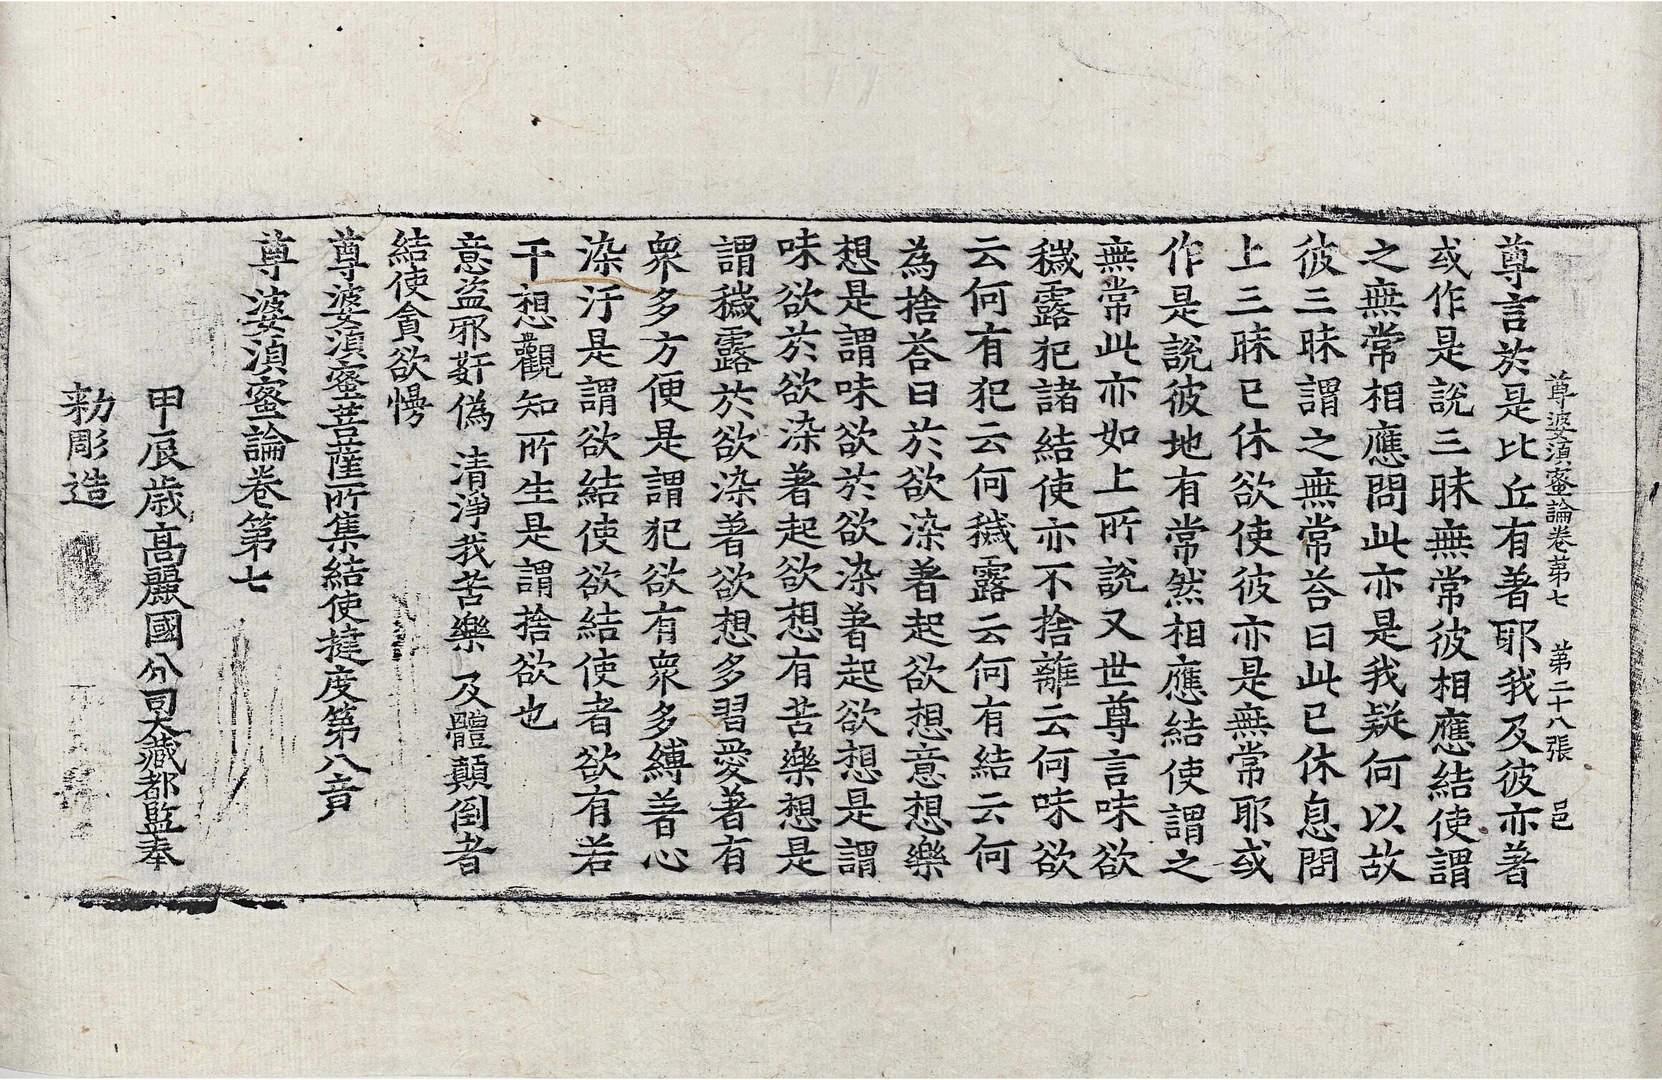 尊婆湏蜜論卷苐七 苐二十八張 邑
尊言於是比丘有著耶我及彼亦著
或作是說三昧無常彼相應結使謂
之無常相應問此亦是我疑何以故
彼三昧謂之無常荅曰此已休息問
上三昧已休欲使彼亦是無常耶或
作是說彼地有常然相應結使謂之
無常此亦如上所說又世尊言味欲
穢露犯諸結使亦不捨離云何味欲
云何有犯云何穢露云何有結云何
為捨荅曰於欲染著起欲想意想樂
想是謂味欲於欲染著起欲想是謂
味欲於欲染著起欲想有苦樂想是
謂穢露於欲染著欲想多習愛著有
衆多方便是謂犯欲有衆多縛著心
染汙是謂欲結使欲結使者欲有若
干想觀知所生是謂捨欲也
意盜邪姧偽 清淨我苦樂 及體顛倒者
結使貪欲慢
尊婆湏蜜菩薩所集結使揵度第八章
尊婆湏蜜論卷第七
甲辰歲高麗國分司大藏都監奉
勑彫造